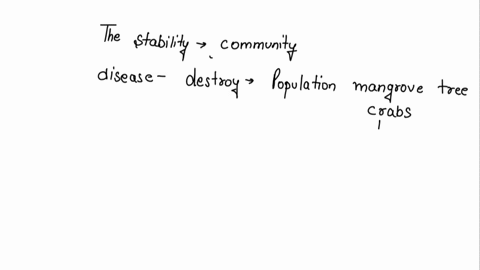 The stability → community
disease - destroy → Population mangrove tree
crabs